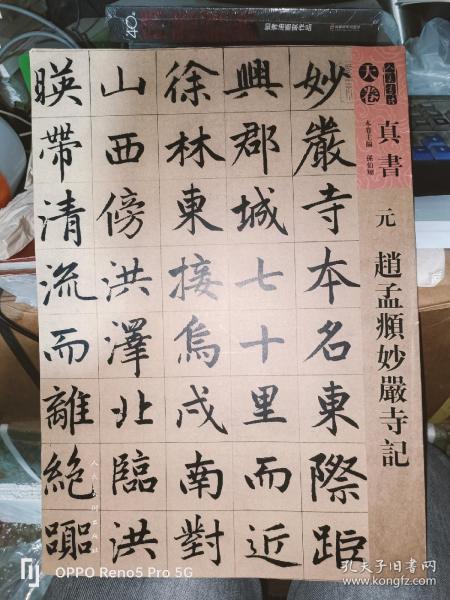 天卷
真書
本卷主編 孫伯翔
元 趙孟頫妙嚴寺記
妙嚴寺本名東際距
興郡城七十里而近
徐林東接烏戍南對
山西傍洪澤北臨洪
暎帶清流而離絕囂
人民美術出版社
OPPO Reno5 Pro 5G
孔夫子旧书网
www.kongfz.com